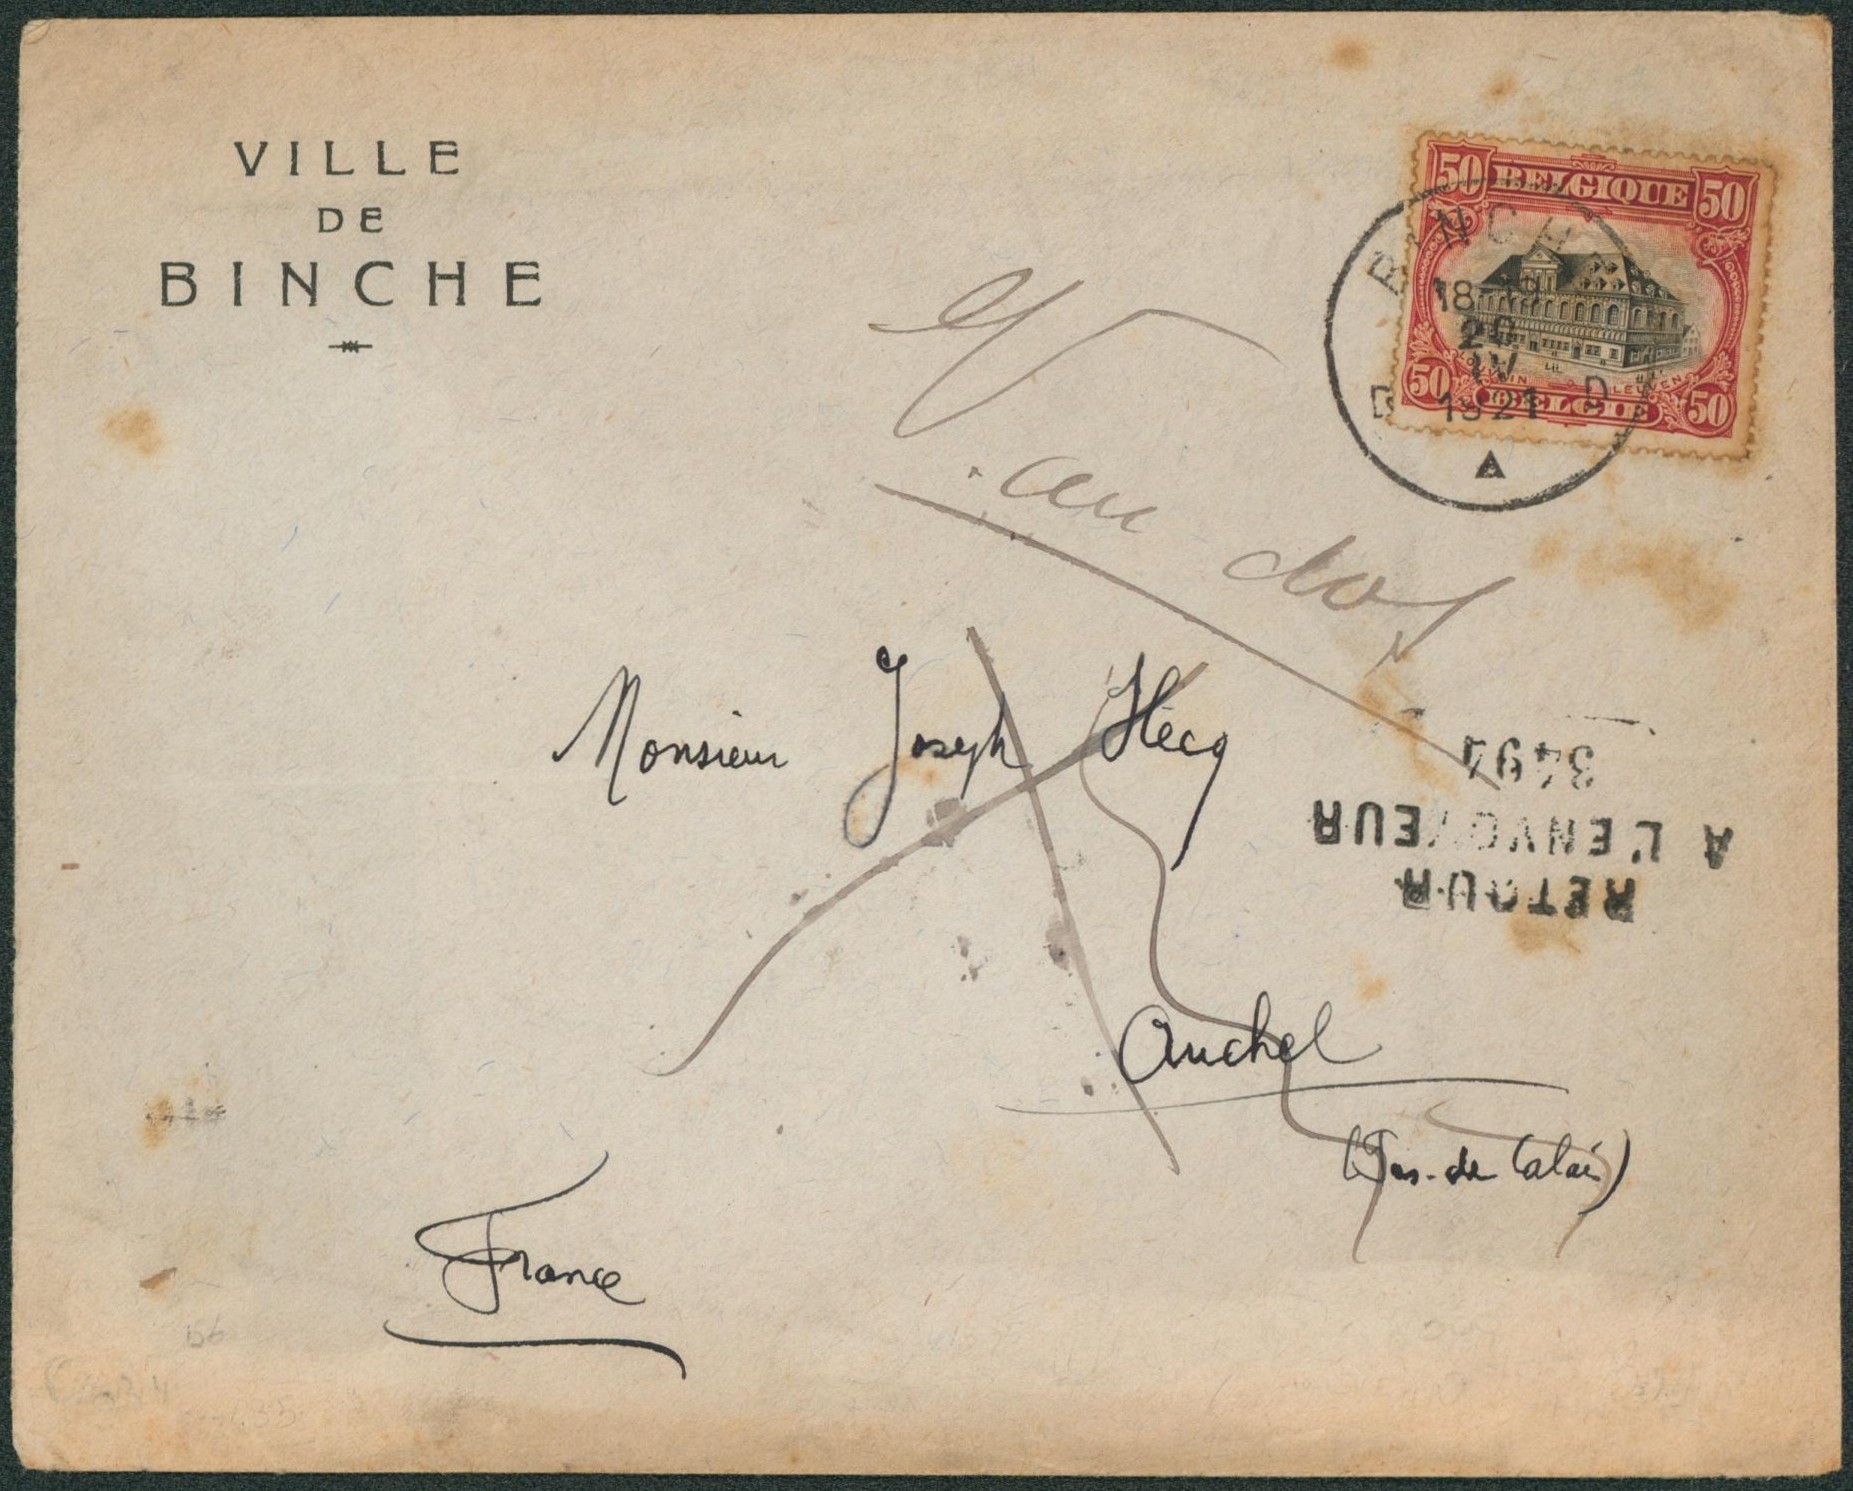 VILLE
DE
BINCHE
50 BELGIQUE 50
LOUVAIN LEUVEN
50 BELGIË 50
BINCHE
18-19
20
IV
1921
D D
V. au dos
Monsieur Joseph Hécq
RETOUR
A L'ENVOYEUR
3494
Auchel
(Pas-de Calais)
France